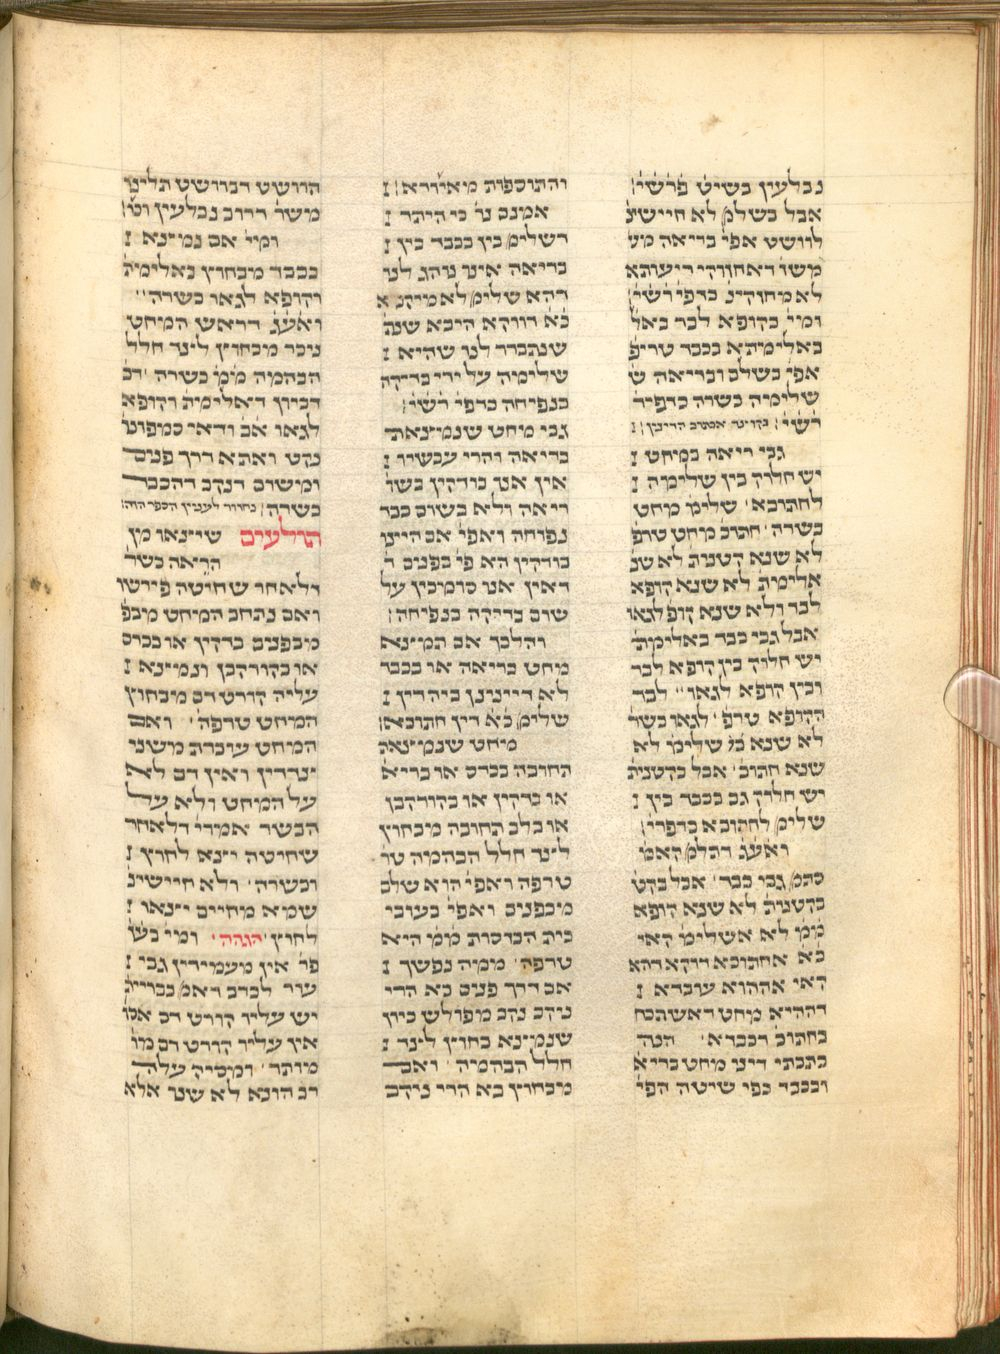 נבלעין בשיט פרשי
אבל בשלמ לא חיישי
לוושט אפי בריאה מע
משו דאחזוהי ריעותא
לא מחזקי כדפי רשי
ומיי בקופא לבר באל
באלימתא בכבד טריפ
אפי בשלב ובריאה ש
שלימה כשרה כדפיר
רשי
גבי ריאה במיחט
יש חלוק בין שלימה
לחתוכא שלימ מחט
כשרה חתוכ מחט טרפ
לא שנא קטנית לא שנ
אלימת לא שנא קופא
לבר ולא שנא קופ לגאו
אבל גבי כבד באלימת
יש חלוק בין קופא לבר
ובין קופא לגאו לבר
הקופא טרפ לגאו כשר
לא שנא שלימ לא
שנא חתוכ אבל בקטנית
יש חלוק גם בכבד בין
שלימ לחתוכא כדפרי
ואעג דתלמ האמ
סתמ גבי כבד אבל בקט
בקטנית לא שנא קופא
ממ לא אשלימ האי
בא אחתוכא דוקא דהא
האי אההוא עובדא
דההיא מחט דאשתכח
בחתוכ דכבדא הנה
כתבתי דיני מחט בריא
ובכבד כפי שיטה הפי
והתוספות מאיורא
אמנם נר כי היתר
דשלימ בין בכבד בין
בריאה אינו נוהג לנו
דהא שלימ לא מיקרא
בא דווקא היכא שנת
שנתברר לנו שהיא
שלימה על ידי בדיקה
בנפיחה כדפי רשי
גבי מחט שנמצאת
בריאה והרי עכשיו
אין אנו בודקין בשו
ריאה ולא בשום כבד
נפוחה ואפי אם היינו
בודקין הא פי בפנים
דאין אנו סומכין על
שום בדיקה בנפיחה
והלכך אם תמצא
מחט בריאה או בכבד
לא דיינינן ביה דין
שלימ בא דין חתוכא
מיחט שנמצאת
תחובה בכרס או בריא
או בדקין או בקורקבן
או בלב תחובה מבחוץ
לצד חלל הבהמה טר
טרפה ואפי הוא שלם
מבפנים ואפי בעובי
בית הכוסות ממ היא
טרפה ממה נפשך
אם דרך פנים בא הרי
ניקב נקב מפולש כיון
שנמצא בחוץ לצד
חלל הבהמה ואם
מבחוץ בא הרי ניקב
הוושט דבוושט תלינן
משו דרוב נבלעין וט
ומי אם נמצא
בכבד מבחוץ באלימת
וקופא לגאו כשרה
ואעג דראש המחט
ניכר מבחוץ לצד חלל
הבהמה ממ כשרה דכ
דכיון דאלימת וקופא
לגאו אכ ודאי סמפונ
נקט ואתא דרך פנים
ומשום דנקב דהכבד
כשרה נחזור לענין הספר הזה
תולעים שיצאו מן
הריאה כשר
דלאחר שחיטה פירשו
ואם נתחב המיחט מבפ
מבפנים בדקין או בכרס
או בקורקבן ונמצא
עליה קורט דם מבחוץ
המיחט טרפה ואם
המחט עוברת משני
צדדין ואין דם לא
על המיחט ולא על
הבשר אמרי דלאחר
שחיטה יצא לחוץ
וכשרה ולא חיישי
שמא מחיים יצאו
לחוץ הגהה ומי בש
פר אין מעמידין גבי
עור לבדב דאמ בברייתא
יש עליו קורט דם אסו
אין עליו קורט דם מו
מותר ומסיה עלה
רב הונא לא שנו אלא